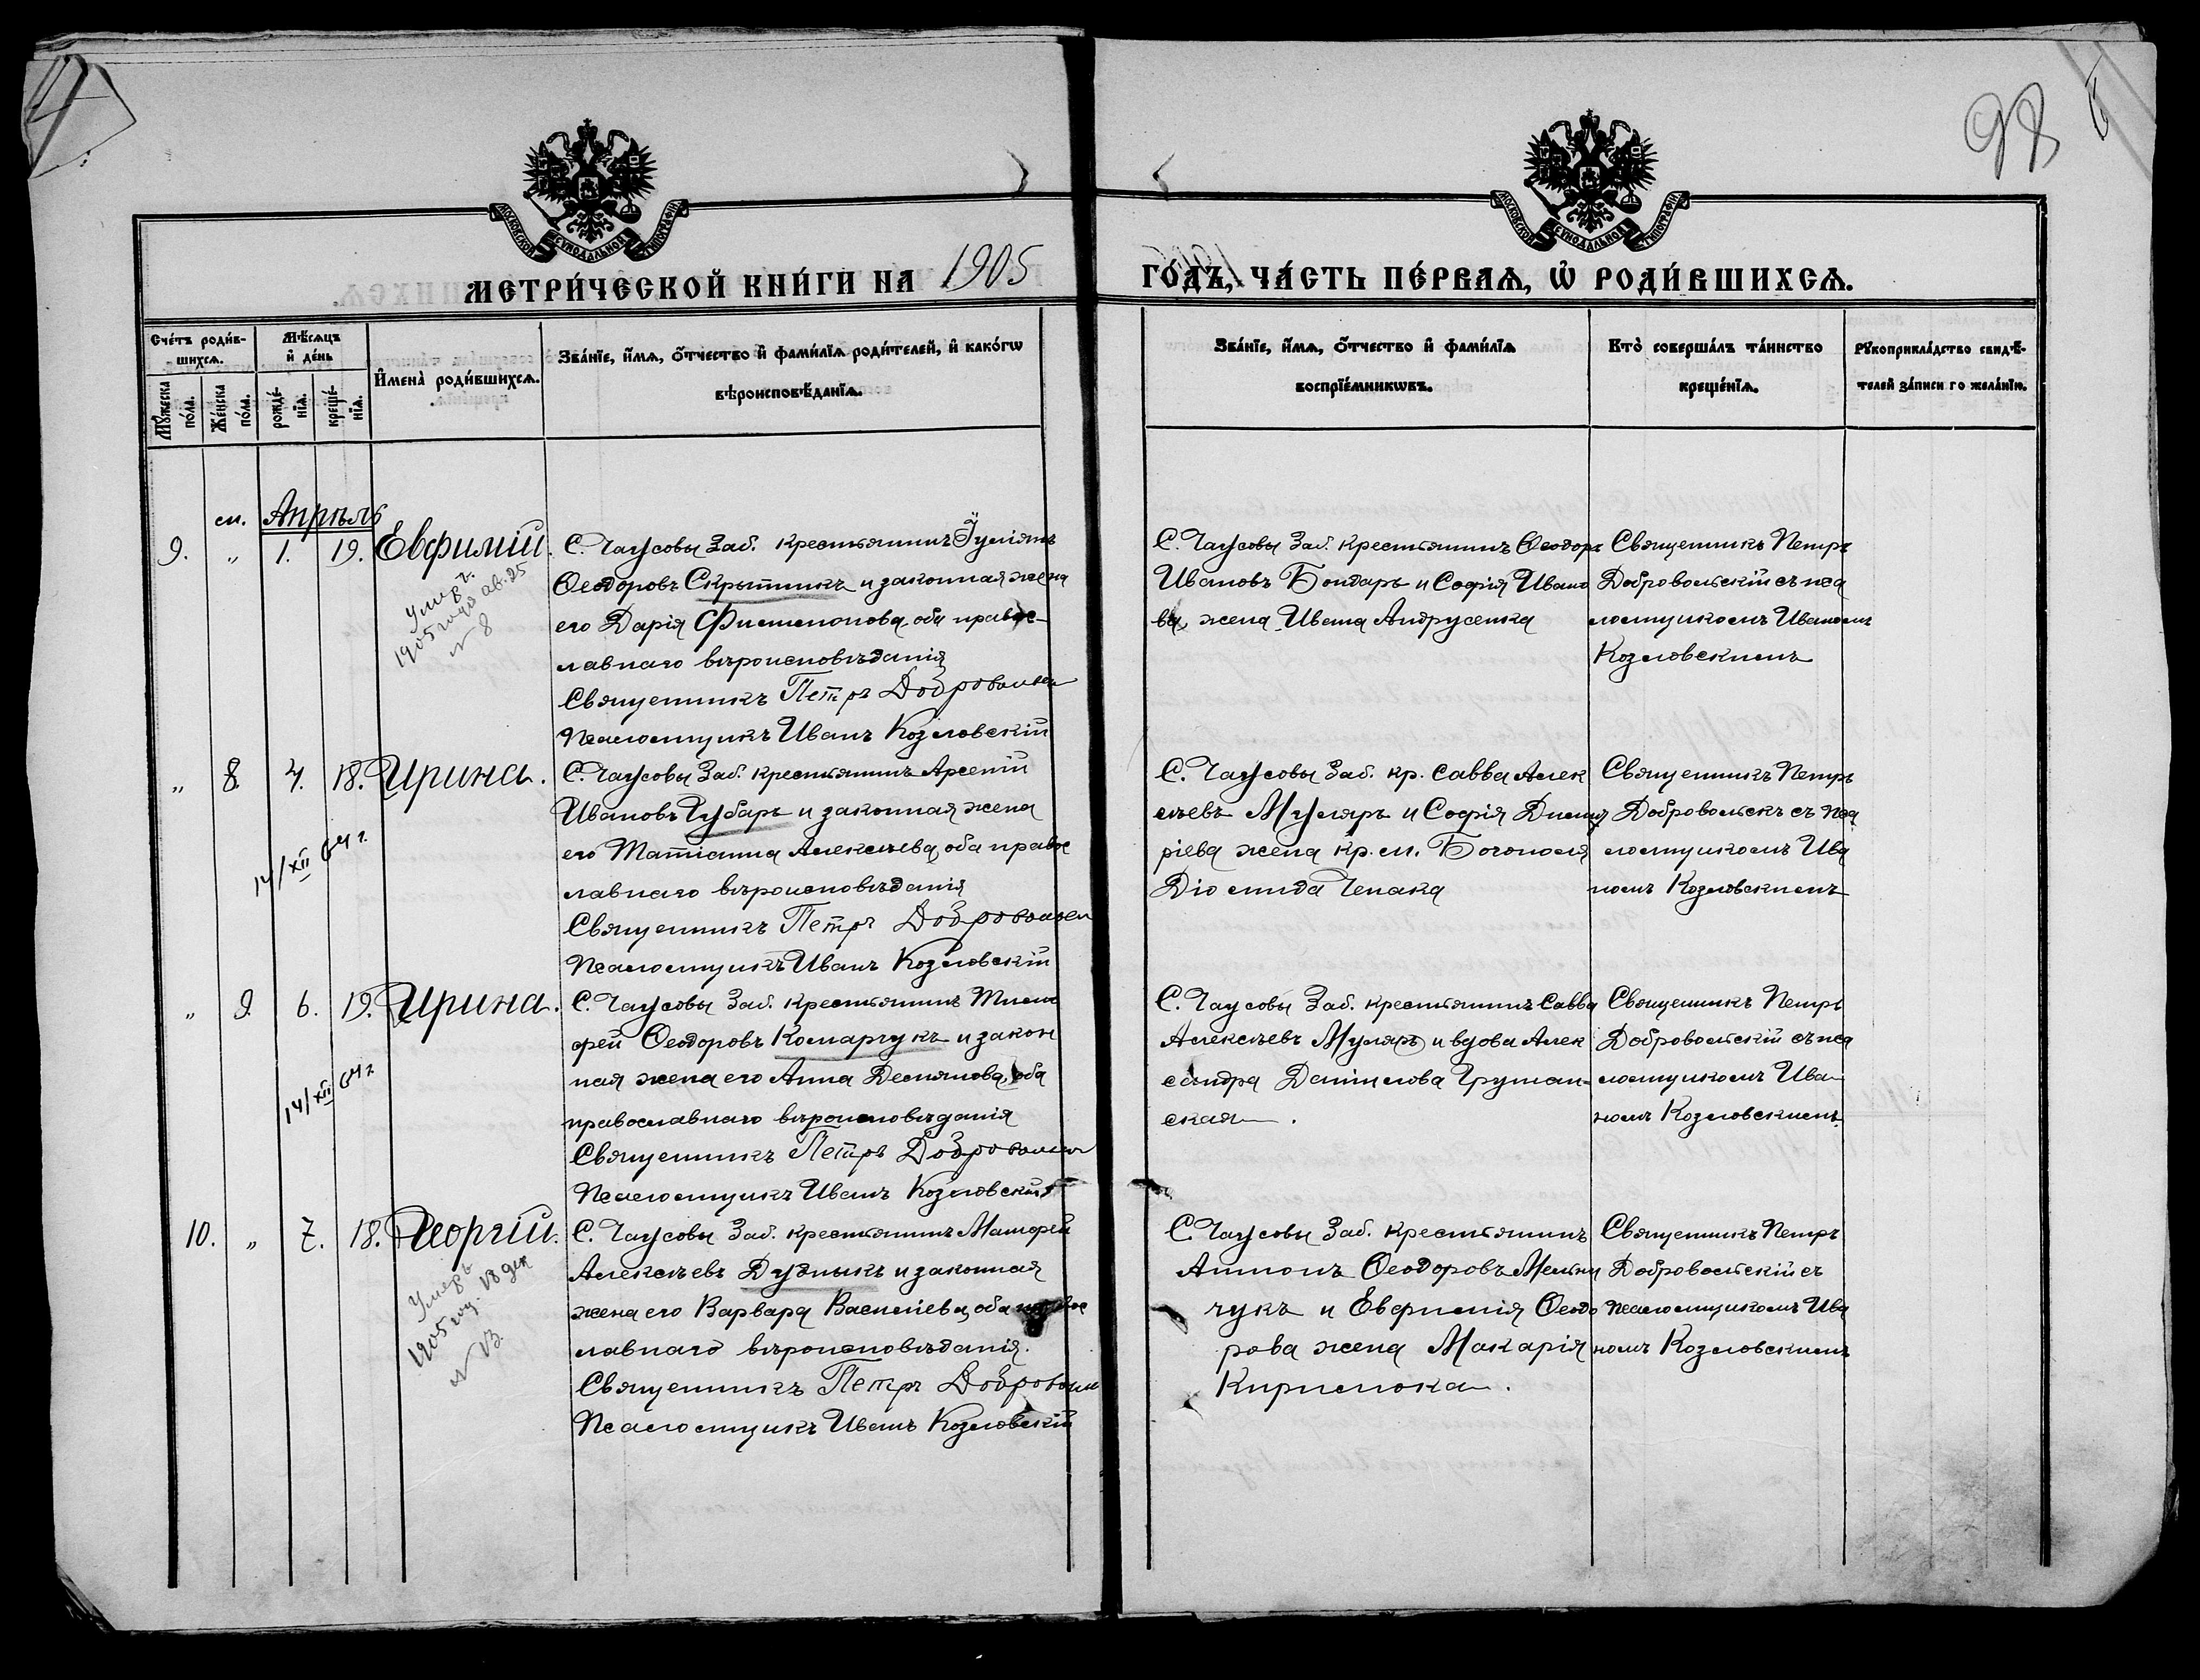 98
МОСКОВСКОЙ СѴНОДАЛЬНОЙ ТИПОГРАФІИ
МОСКОВСКОЙ СѴНОДАЛЬНОЙ ТИПОГРАФІИ
МЕТРИ́ЧЕСКОЙ КНИ́ГИ НА 1905
ГО́ДЪ, ЧА́СТЬ ПЕ́РВАѦ, Ѽ РОДИ́ВШИХСѦ.
Сче́тъ роди́в-
шихсѧ.
Мꙋ́жеска
по́ла.
Же́нска
по́ла.
Мѣ́сѧцъ
и҆ де́нь
рожде́-
нїѧ.
креще́-
нїѧ.
И҆мена̀ роди́вшихсѧ.
Зва́нїе, и҆́мѧ, ѻ҆́тчество и҆ фами́лїѧ роди́телей, и҆ како́гѡ
вѣроисповѣ́данїѧ.
Зва́нїе, и҆́мѧ, ѻ҆́тчество и҆ фами́лїѧ
воспрїе́мникѡвъ.
Кто̀ соверша́лъ та́инство
креще́нїѧ.
Рꙋкоприкла́дство свидѣ́-
телей за́писи по жела́нїю.
м. Апрѣль
9. „ 1. 19. Евфимій.
Умеръ
1905 года ав. 25
N 8
С. Чаусовы Заб. крестьянинъ Іуліанъ
Ѳеодоровъ Скрытникъ и законная жена
его Дарія Филимонова, оба правос-
лавнаго вѣроисповѣданія
Священникъ Петръ Доброволь
Псаломщикъ Иванъ Козловскій
С. Чаусовы Заб. крестьянинъ Ѳеодоръ
Ивановъ Бондаръ и Софія Ивано
ва, жена Ивана Андрусенка
Священникъ Петръ
Добровольскій съ пса
ломщикомъ Иваномъ
Козловскимъ
„ 8. 4. 18. Ирина.
14/XII 64 г.
С. Чаусовы Заб. крестьянинъ Арсеній
Ивановъ Чубаръ и законная жена
его Татіанна Алексѣева, оба правос
лавнаго вѣроисповѣданія
Священникъ Петръ Доброволь
Псаломщикъ Иванъ Козловскій
С. Чаусовы Заб. кр. Савва Алек
сѣевъ Муляръ и Софія Димит
ріева жена кр. м. Богополя
Діомида Чепака
Священникъ Петръ
Добровольск. съ пса
ломщикомъ Ива
номъ Козловскимъ
„ 9. 6. 19. Ирина.
14/XII 64 г
С. Чаусовы Заб. крестьянинъ Тимо
фей Ѳеодоровъ Комарчукъ и закон
ная жена его Анна Демянова, оба
православнаго вѣроисповѣданія
Священникъ Петръ Доброволь
Псаломщикъ Иванъ Козловскій
С. Чаусовы Заб. крестьянинъ Савва
Алексѣевъ Муляръ и вдова Алек
сандра Даніилова Груман-
ская.
Священникъ Петръ
Добровольскій съ пса
ломщикомъ Ива
номъ Козловскимъ
10. „ 7. 18. Георгій.
Умеръ
1905 год. 18 дек
N 13.
С. Чаусовы Заб. крестьянинъ Матѳей
Алексѣевъ Дудныкъ и законная
жена его Варвара Василіева, оба правос
лавнаго вѣроисповѣданія.
Священникъ Петръ Доброволь
Псаломщикъ Иванъ Козловскій
С. Чаусовы Заб. крестьянинъ
Антонъ Ѳеодоровъ Мельни
чукъ и Евфимія Ѳеодо
рова жена Макарія
Кирилюка.
Священникъ Петръ
Добровольскій съ
псаломщикомъ Ива
номъ Козловскимъ